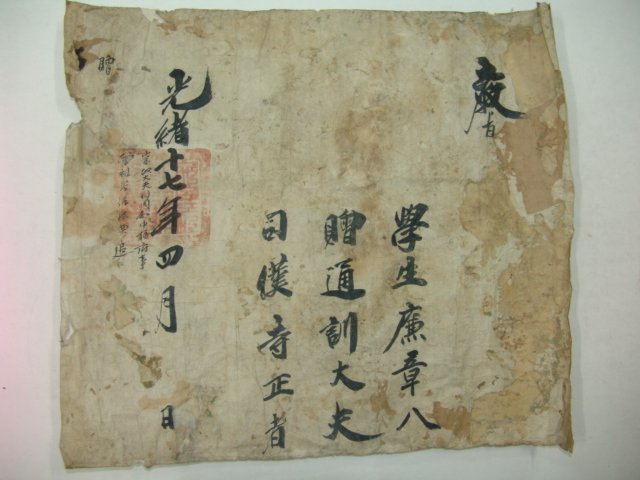 敎旨
學生廉章八
贈通訓大夫
司僕寺正者
光緖十七年四月 日
贈